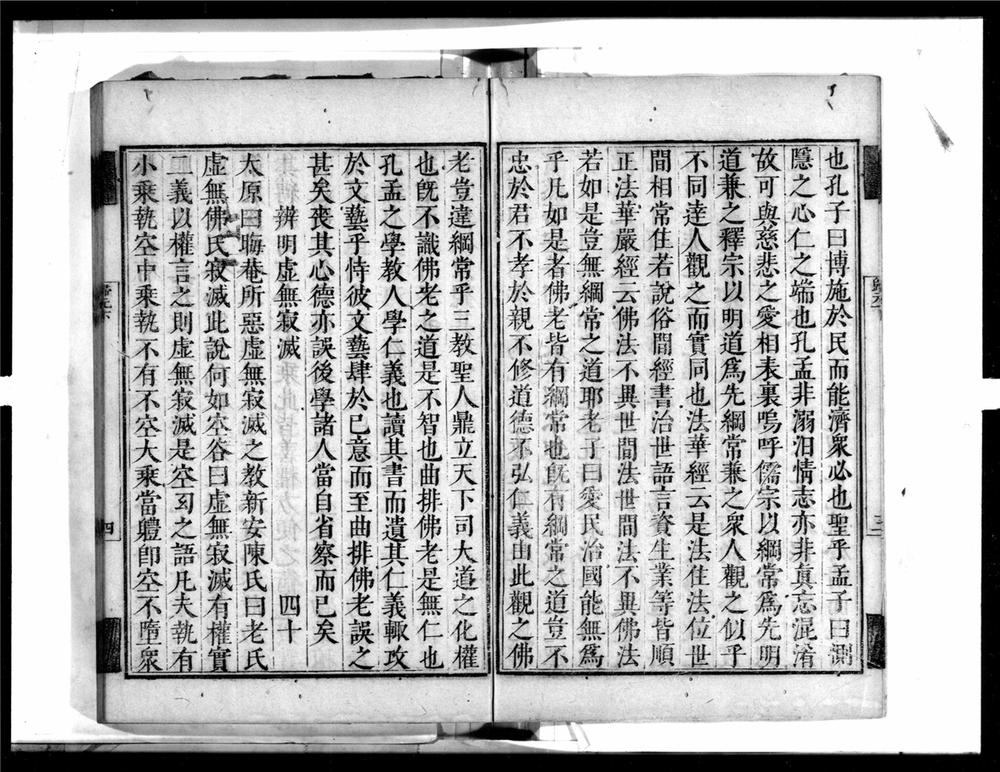 也孔子曰博施於民而能濟衆必也聖乎孟子曰惻
隱之心仁之端也孔孟非溺汨情志亦非眞忘混淆
故可與慈悲之愛相表裏嗚呼儒宗以綱常爲先明
道兼之釋宗以明道爲先綱常兼之衆人觀之似乎
不同達人觀之而實同也法華經云是法住法位世
間相常住若說俗間經書治世語言資生業等皆順
正法華嚴經云佛法不異世間法世間法不異佛法
若如是豈無綱常之道耶老子曰愛民治國能無爲
乎凡如是者佛老皆有綱常也旣有綱常之道豈不
忠於君不孝於親不修道德不弘仁義由此觀之佛
老豈違綱常乎三教聖人鼎立天下司大道之化權
也旣不識佛老之道是不智也曲排佛老是無仁也
孔孟之學教人學仁義也讀其書而遺其仁義輙攻
於文藝乎恃彼文藝肆於己意而至曲排佛老誤之
甚矣喪其心德亦誤後學諸人當自省察而已矣
辨明虛無寂滅 四十
太原曰晦菴所惡虛無寂滅之教新安陳氏曰老氏
虛無佛氏寂滅此說何如空谷曰虛無寂滅有權實
二義以權言之則虛無寂滅是空刄之語凡夫執有
小乘執空中乘執不有不空大乘當軆卽空不墮衆
歸元下
三
四